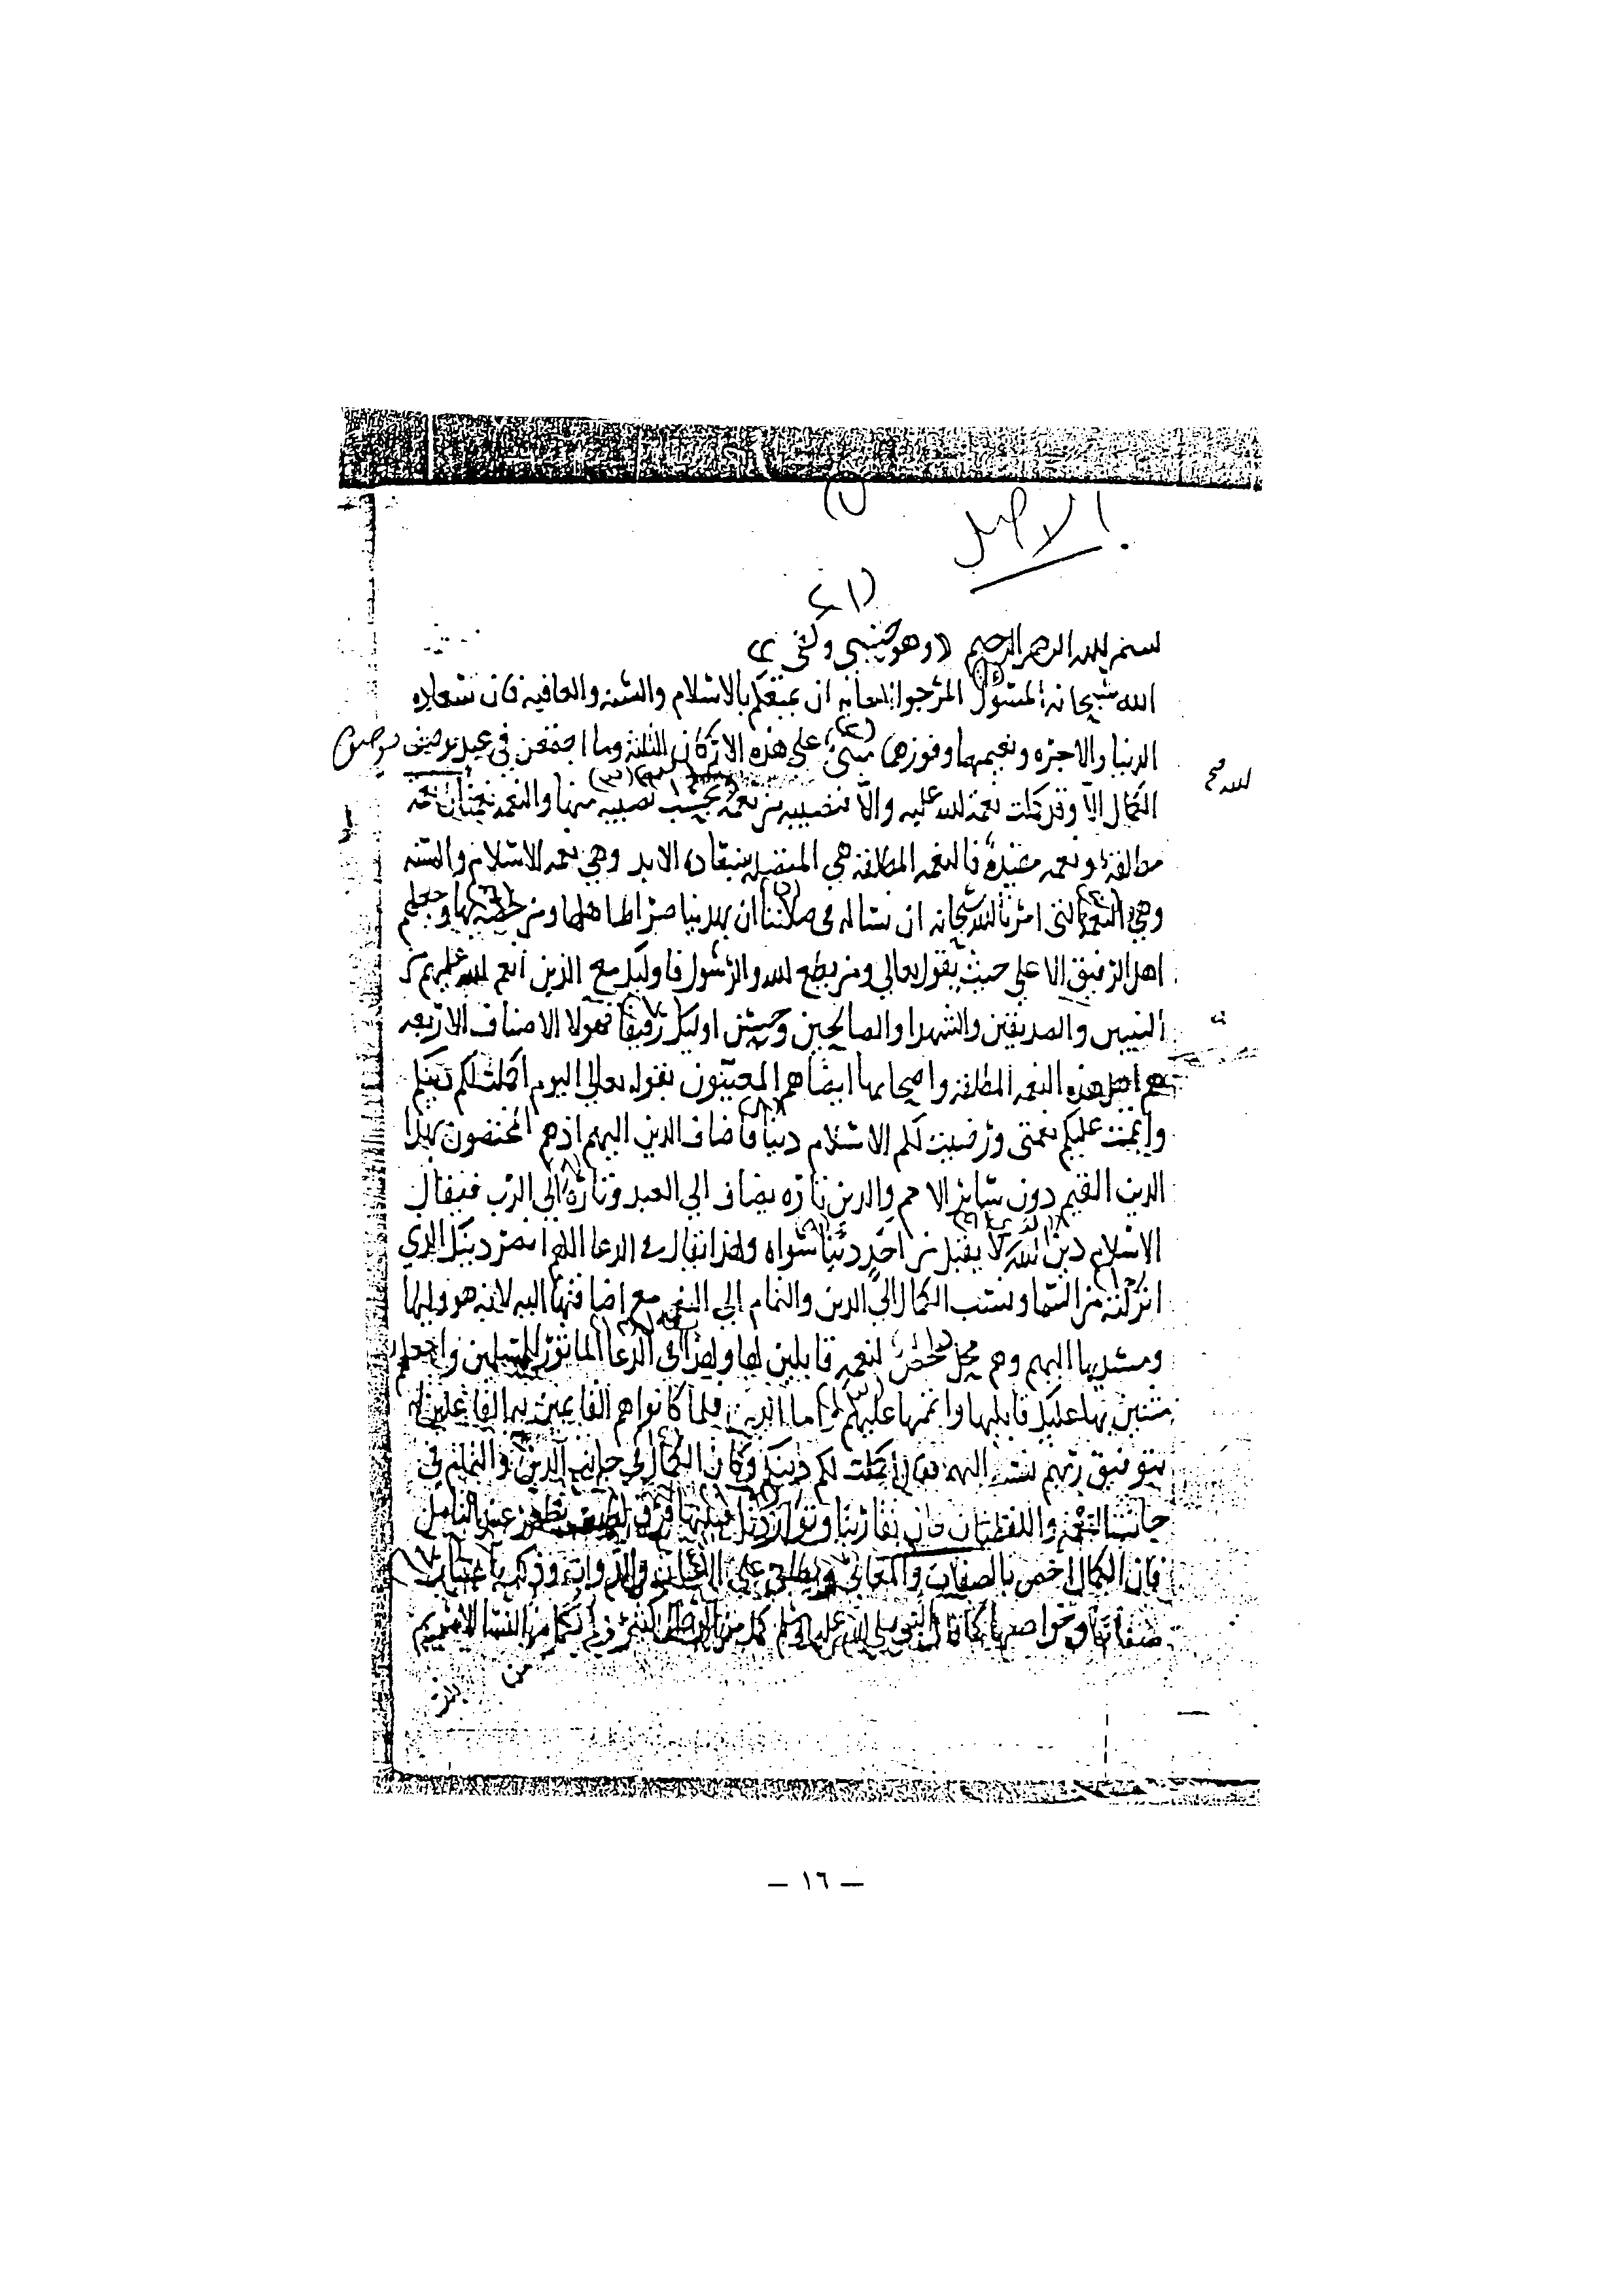 الاصل
بسم الله الرحمن الرحيم (وهو حسبي وكفى)
الله سبحانه المسئول المرجو الاجابه ان يمتعكم بالاسلام والسنه والعافيه فان سعاده
الدنيا والاخره ونعيمهما وفوزهما مبني على هذه الاركان الثلثه وما اجتمعن في عبد بوصف
الكمال الا وقد كملت نعمة الله عليه والا فنصيبه من نعمة بحسب نصيبه منها والنعمه نعمتان نعمه
مطلقة ونعمه مقيده فالنعمه المطلقه هي المتصله بسعادة الابد وهي نعمه الاسلام والسنه
وهي النعمه التي امرنا الله سبحانه ان نساله في صلاتنا ان يهدينا صراط اهلها ومن خصه بها وجعلهم
اهل الرفيق الاعلي حيث يقول تعالي ومن يطع الله والرسول فاوليك مع الذين أنعم الله عليهم من
النبيين والصديقين والشهدا والصالحين وحسن اوليك رفيقا فهولا الاصناف الاربعه
هم اهل هذه النعمه المطلقه واصحابها ايضا هم المعنيون بقوله تعالي اليوم اكملت لكم دينكم
واتممت عليكم نعمتي ورضيت لكم الاسلام دينا فاضاف الدين اليهم اذ هم المختصون بهذا
الدين القيم دون سائر الامم والدين تارة يضاف الي العبد وتارة الي الرب فيقال
الاسلام دين الله لا يقبل من احد دينا سواه ولهذا يقال في الدعا اللهم انصر دينك الذي
انزلته من السما ونسب الكمال الي الدين والتمام الي النعمه مع اضافتها اليه لانه هو وليها
ومسديها اليهم وهم محل محض لنعمه قابلين لها ولهذا في الدعا الماثور للمسلمين واجعلهم
مثنين بها عليك قابليها واتممها عليهم واما الدين فلما كانوا هم القايمين به الفاعلين له
بتوفيق ربهم نسبه اليهم فقال اكملت لكم دينكم وكان الكمال في جانب الدين والتمام في
جانب النعمه واللفظتان وان تقاربتا وتواردتا فبينهما فرق لطيف يظهر عند التامل
فان الكمال اخص بالصفات والمعاني ويطلق على الاعيان والذوات وذلك باعتبار
صفاتها وخواصها كما قال النبي صلى الله عليه وسلم كمل من الرجال كثير ولم يكمل من النسا الا مريم
– ١٦ –